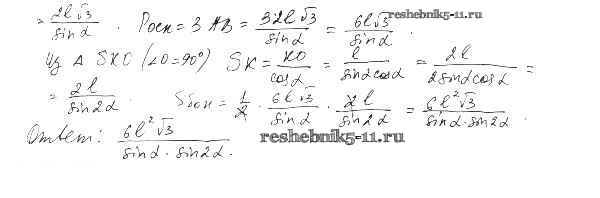 = 2l√3/sinα . Pосн = 3 AB = 32l√3/sinα = 6l√3/sinα .
reshebnik5-11.ru
Из Δ SKO (∠O=90°) SK = KO/cosα = l/sinαcosα = 2l/2sinαcosα =
= 2l/sin2α . Sбок = 1/2 · 6l√3/sinα · 2l/sin2α = 6l²√3/sinα·sin2α .
reshebnik5-11.ru
Ответ: 6l²√3/sinα·sin2α.